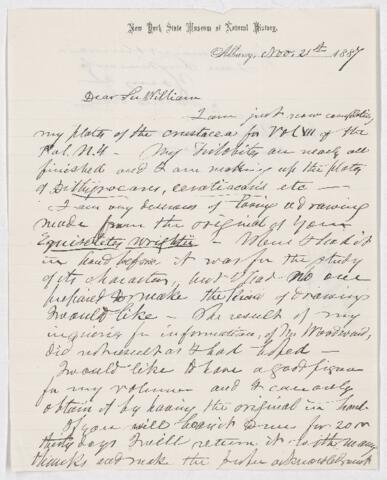 New York State Museum of Natural History,
Albany, Nov. 21st 1887
Dear Sir William
I am just now completing
my plates of the crustacea for Vol VII of the
Pal. N.Y. - My Trilobites are nearly all
finished and I am making up the plates
of Dithyrocaris, ceratiocaris etc —
I am very desirous of having a drawing
made from the original of your
Equisetites Wrightii - When I had it
in hand before it was for the study
of its characters, and I had no one
prepared to make the kind of drawing
I would like - The result of my
inquiries for information, of Mr Woodward,
did not result as I had hoped —
I would like to have a good figure
for my volume and I can only
obtain it by having the original in hand.
If you will send it to me for 20 or
thirty days I will return it with many
thanks and make the proper acknowledgment